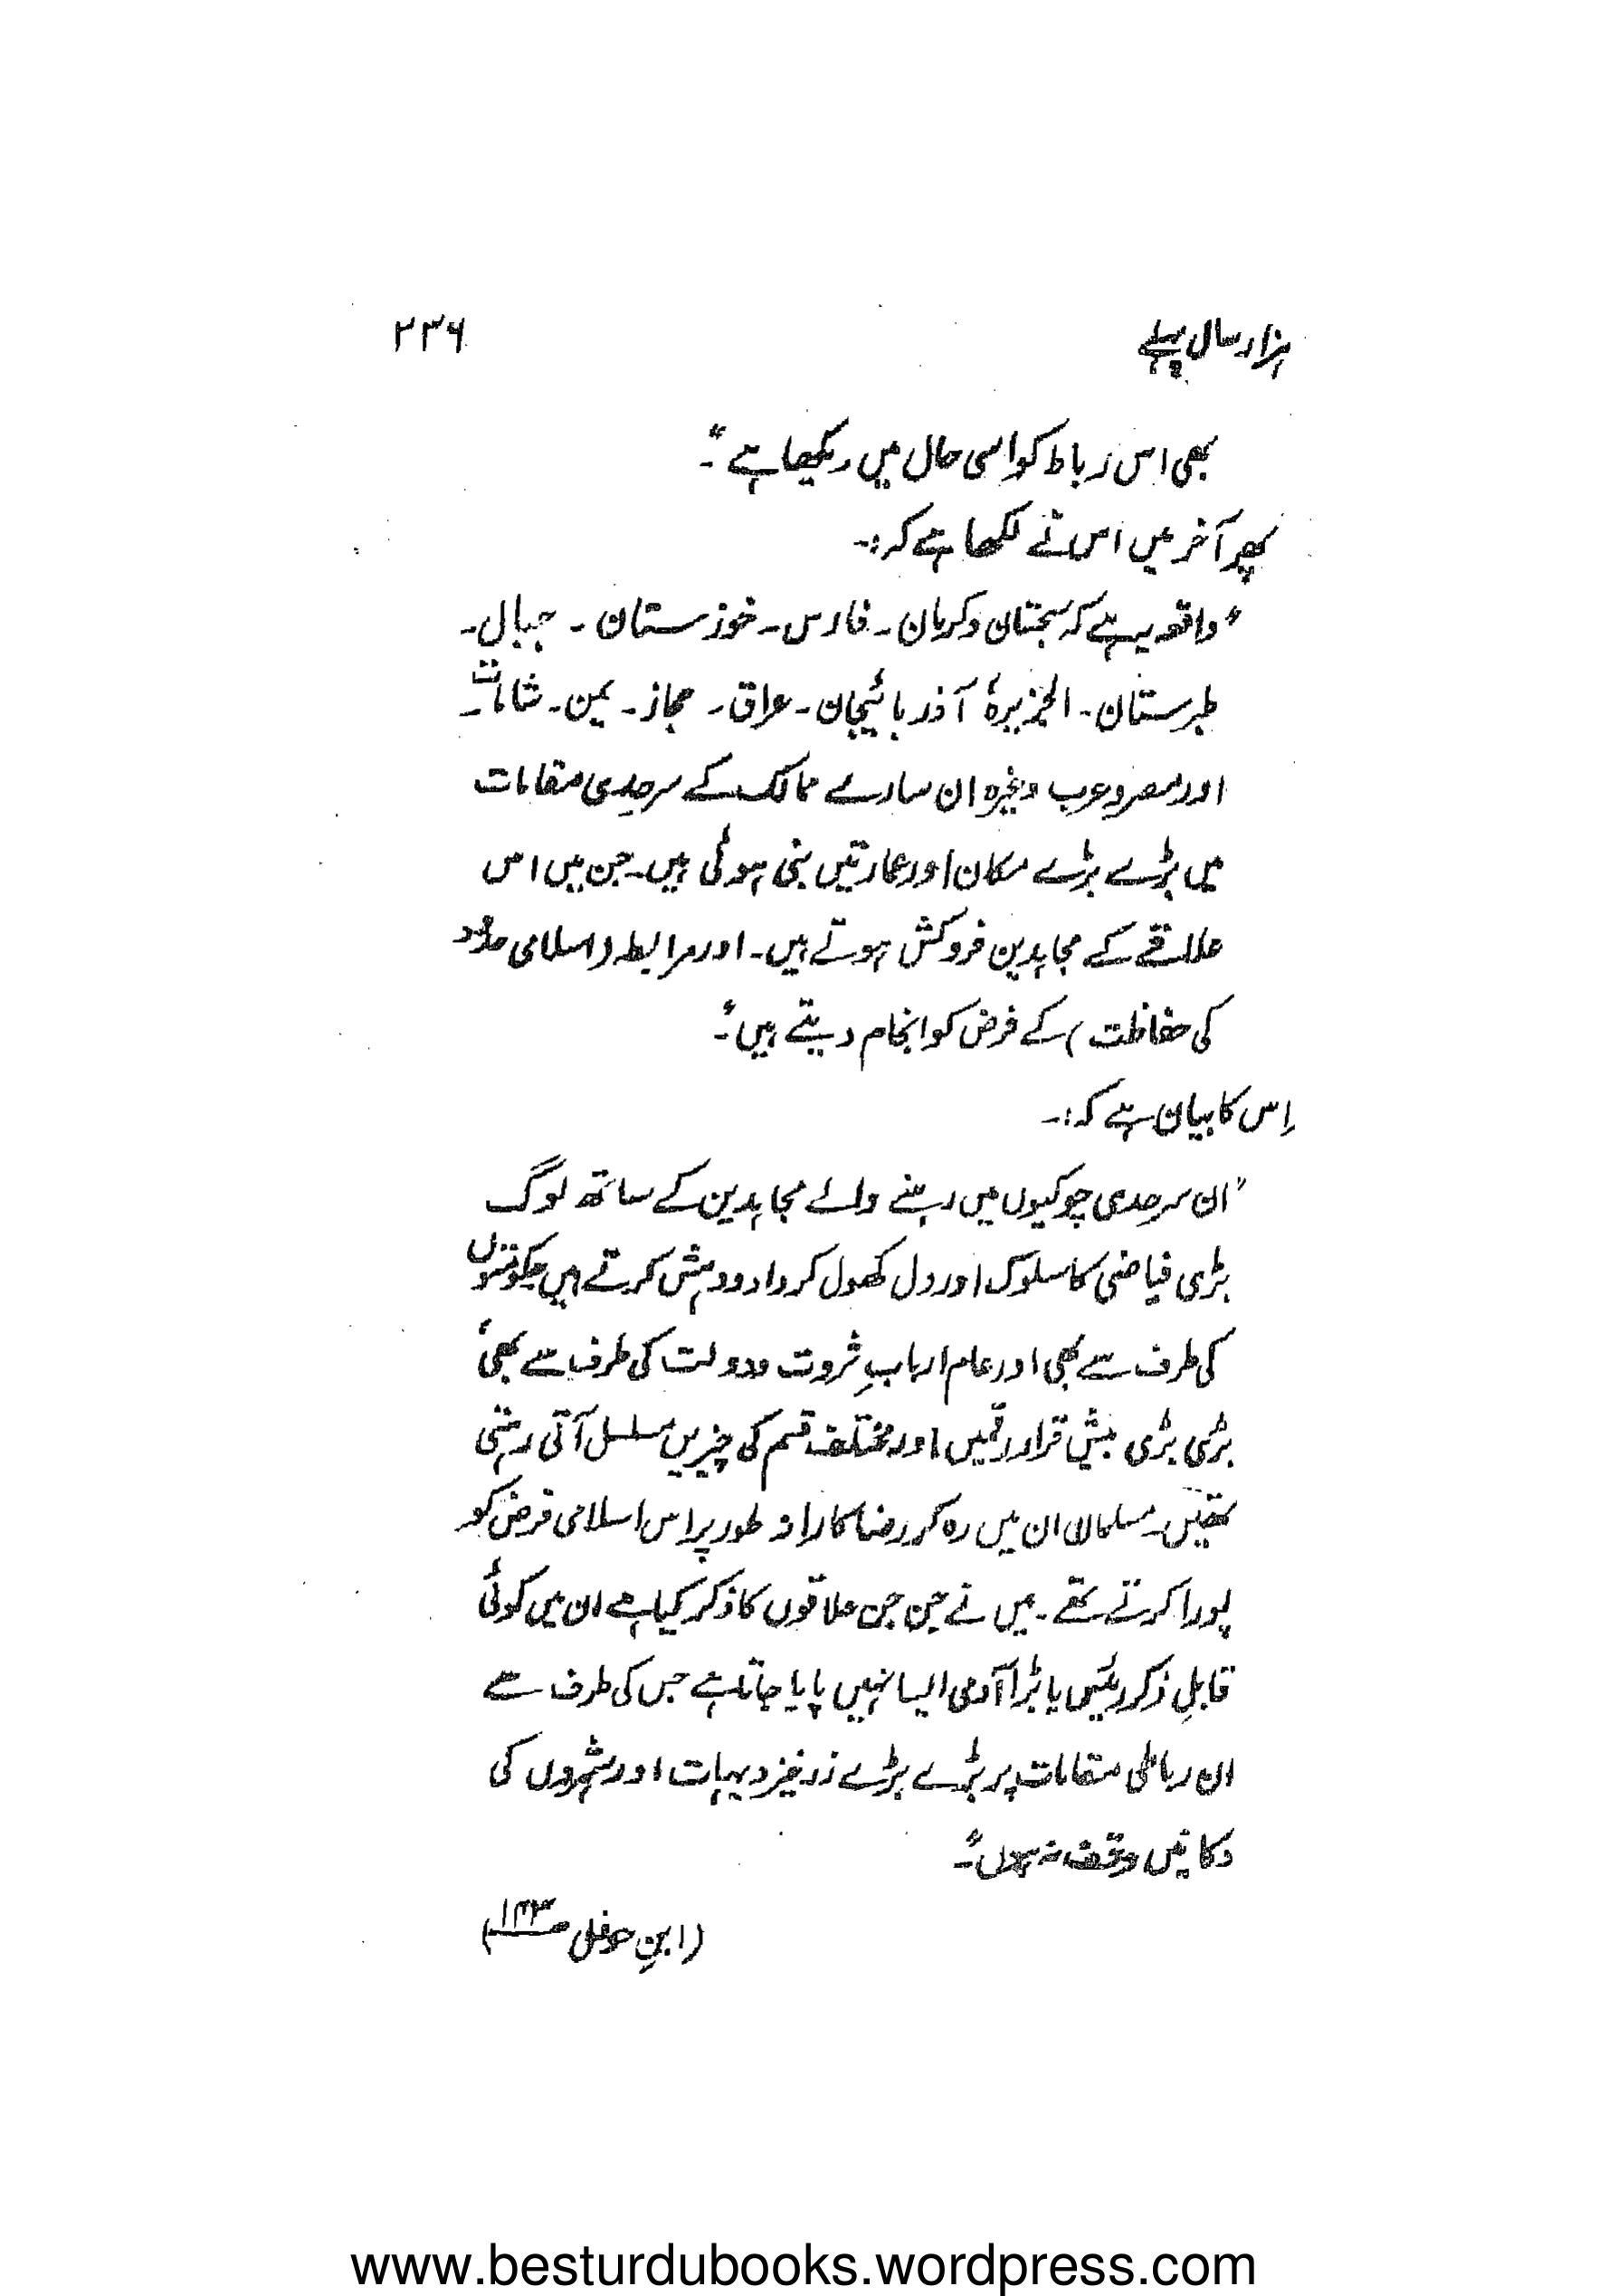 ہزار سال پہلے ۲۳۶
بھی اس رباط کو اسی حال میں دیکھا ہے"۔
پھر آخر میں اس نے لکھا ہے کہ:۔
"واقعہ یہ ہے کہ سجستان و کرمان۔ فارس۔ خوزستان۔ جبال۔
طبرستان۔ الجزیرہ، آذر بائیجان۔ عراق۔ حجاز۔ یمن۔ شامات۔
اور مصر و عرب وغیرہ ان سارے ممالک کے سرحدی مقامات
میں بڑے بڑے مکان اور عمارتیں بنی ہوئی ہیں۔ جن میں اس
علاقے کے مجاہدین فروکش ہوتے ہیں۔ اور مرابطہ (اسلامی حدود
کی حفاظت) کے فرض کو انجام دیتے ہیں"۔
اِس کا بیان ہے کہ:۔
"ان سرحدی چوکیوں میں رہنے والے مجاہدین کے ساتھ لوگ
بڑی فیاضی کا سلوک اور دل کھول کر داد و دہش کرتے ہیں حکومتوں
کی طرف سے بھی اور عام اربابِ ثروت و دولت کی طرف سے بھی،
بڑی بڑی بیش قرار رقمیں اور مختلف قسم کی چیزیں مسلسل آتی رہتی
تھیں۔ مسلمان ان میں رہ کر رضا کارانہ طور پر اس اسلامی فرض کو
پورا کرتے تھے۔ میں نے جن جن علاقوں کا ذکر کیا ہے ان میں کوئی
قابلِ ذکر رئیس یا بڑا آدمی ایسا نہیں پایا جاتا ہے جس کی طرف سے
ان رباطی مقامات پر بڑے بڑے زرخیز دیہات اور شہروں کی
دکانیں وقف نہ ہوں"۔
(ابنِ حوقل ص)
www.besturdubooks.wordpress.com